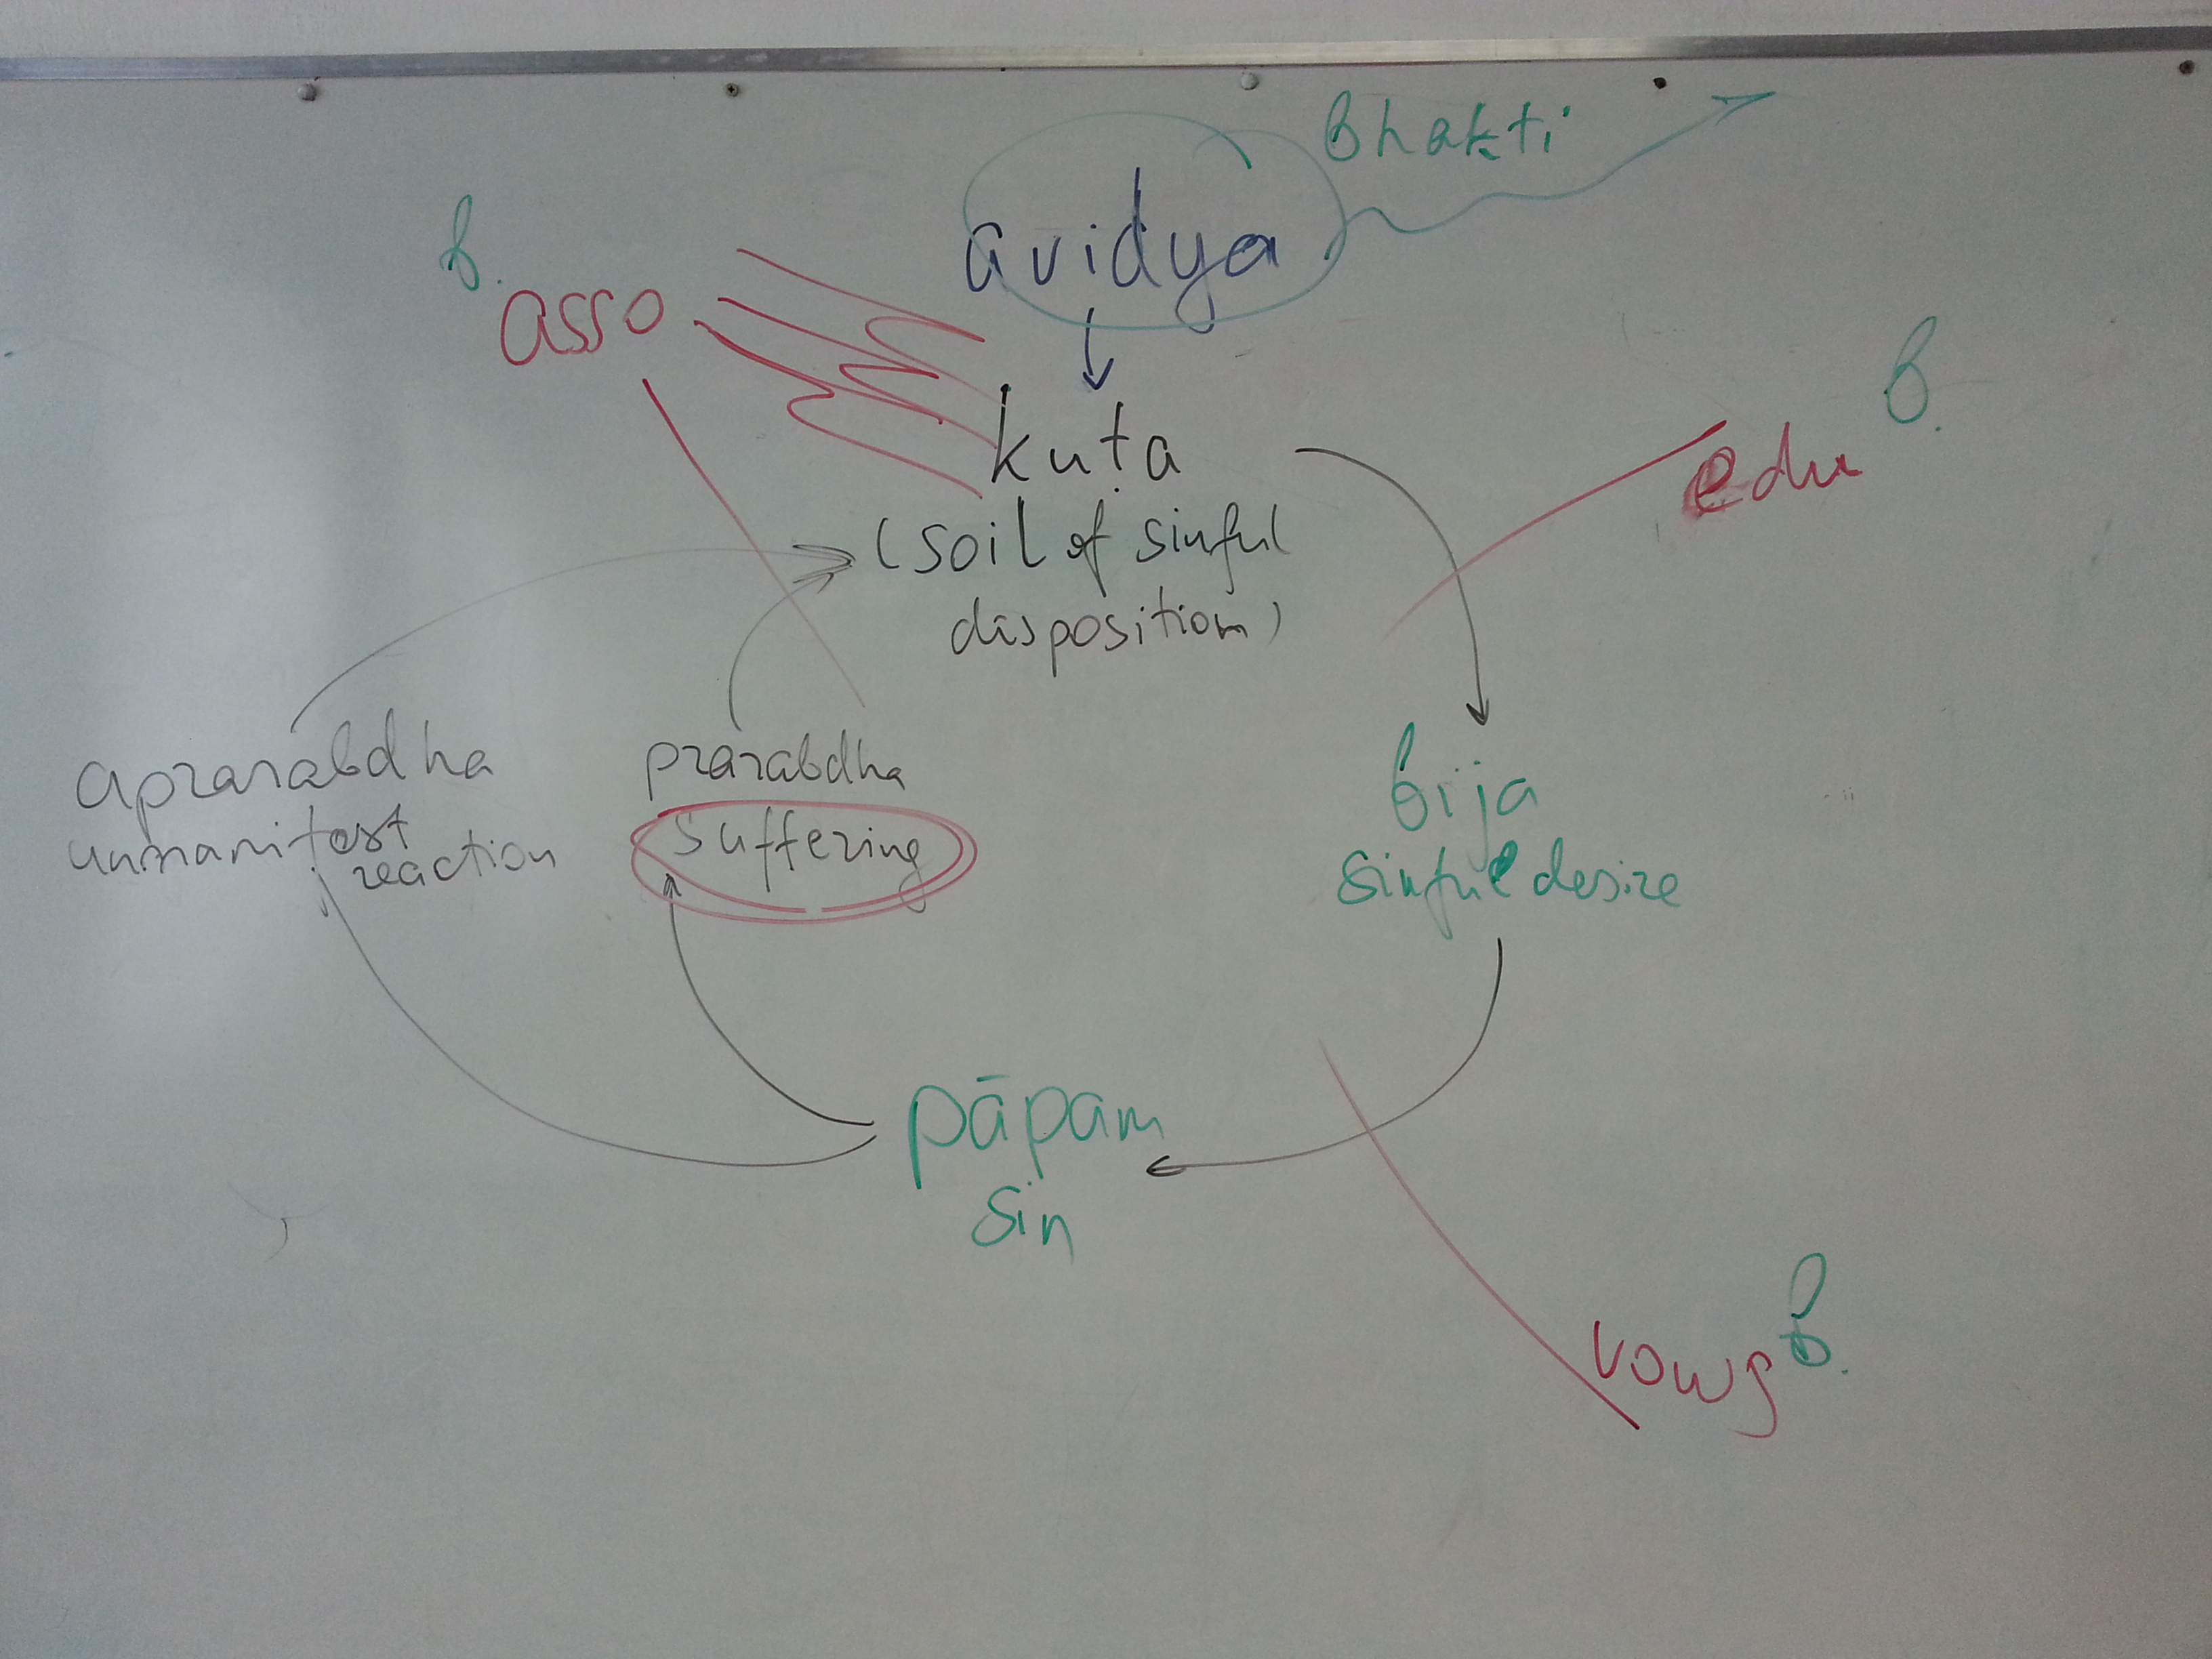 Bhakti
avidya
b.
asso
kuta
(soil of sinful
disposition)
b.
edu
aprarabdha
unmanifest
reaction
prarabdha
suffering
bija
sinful desire
pāpam
sin
vows b.